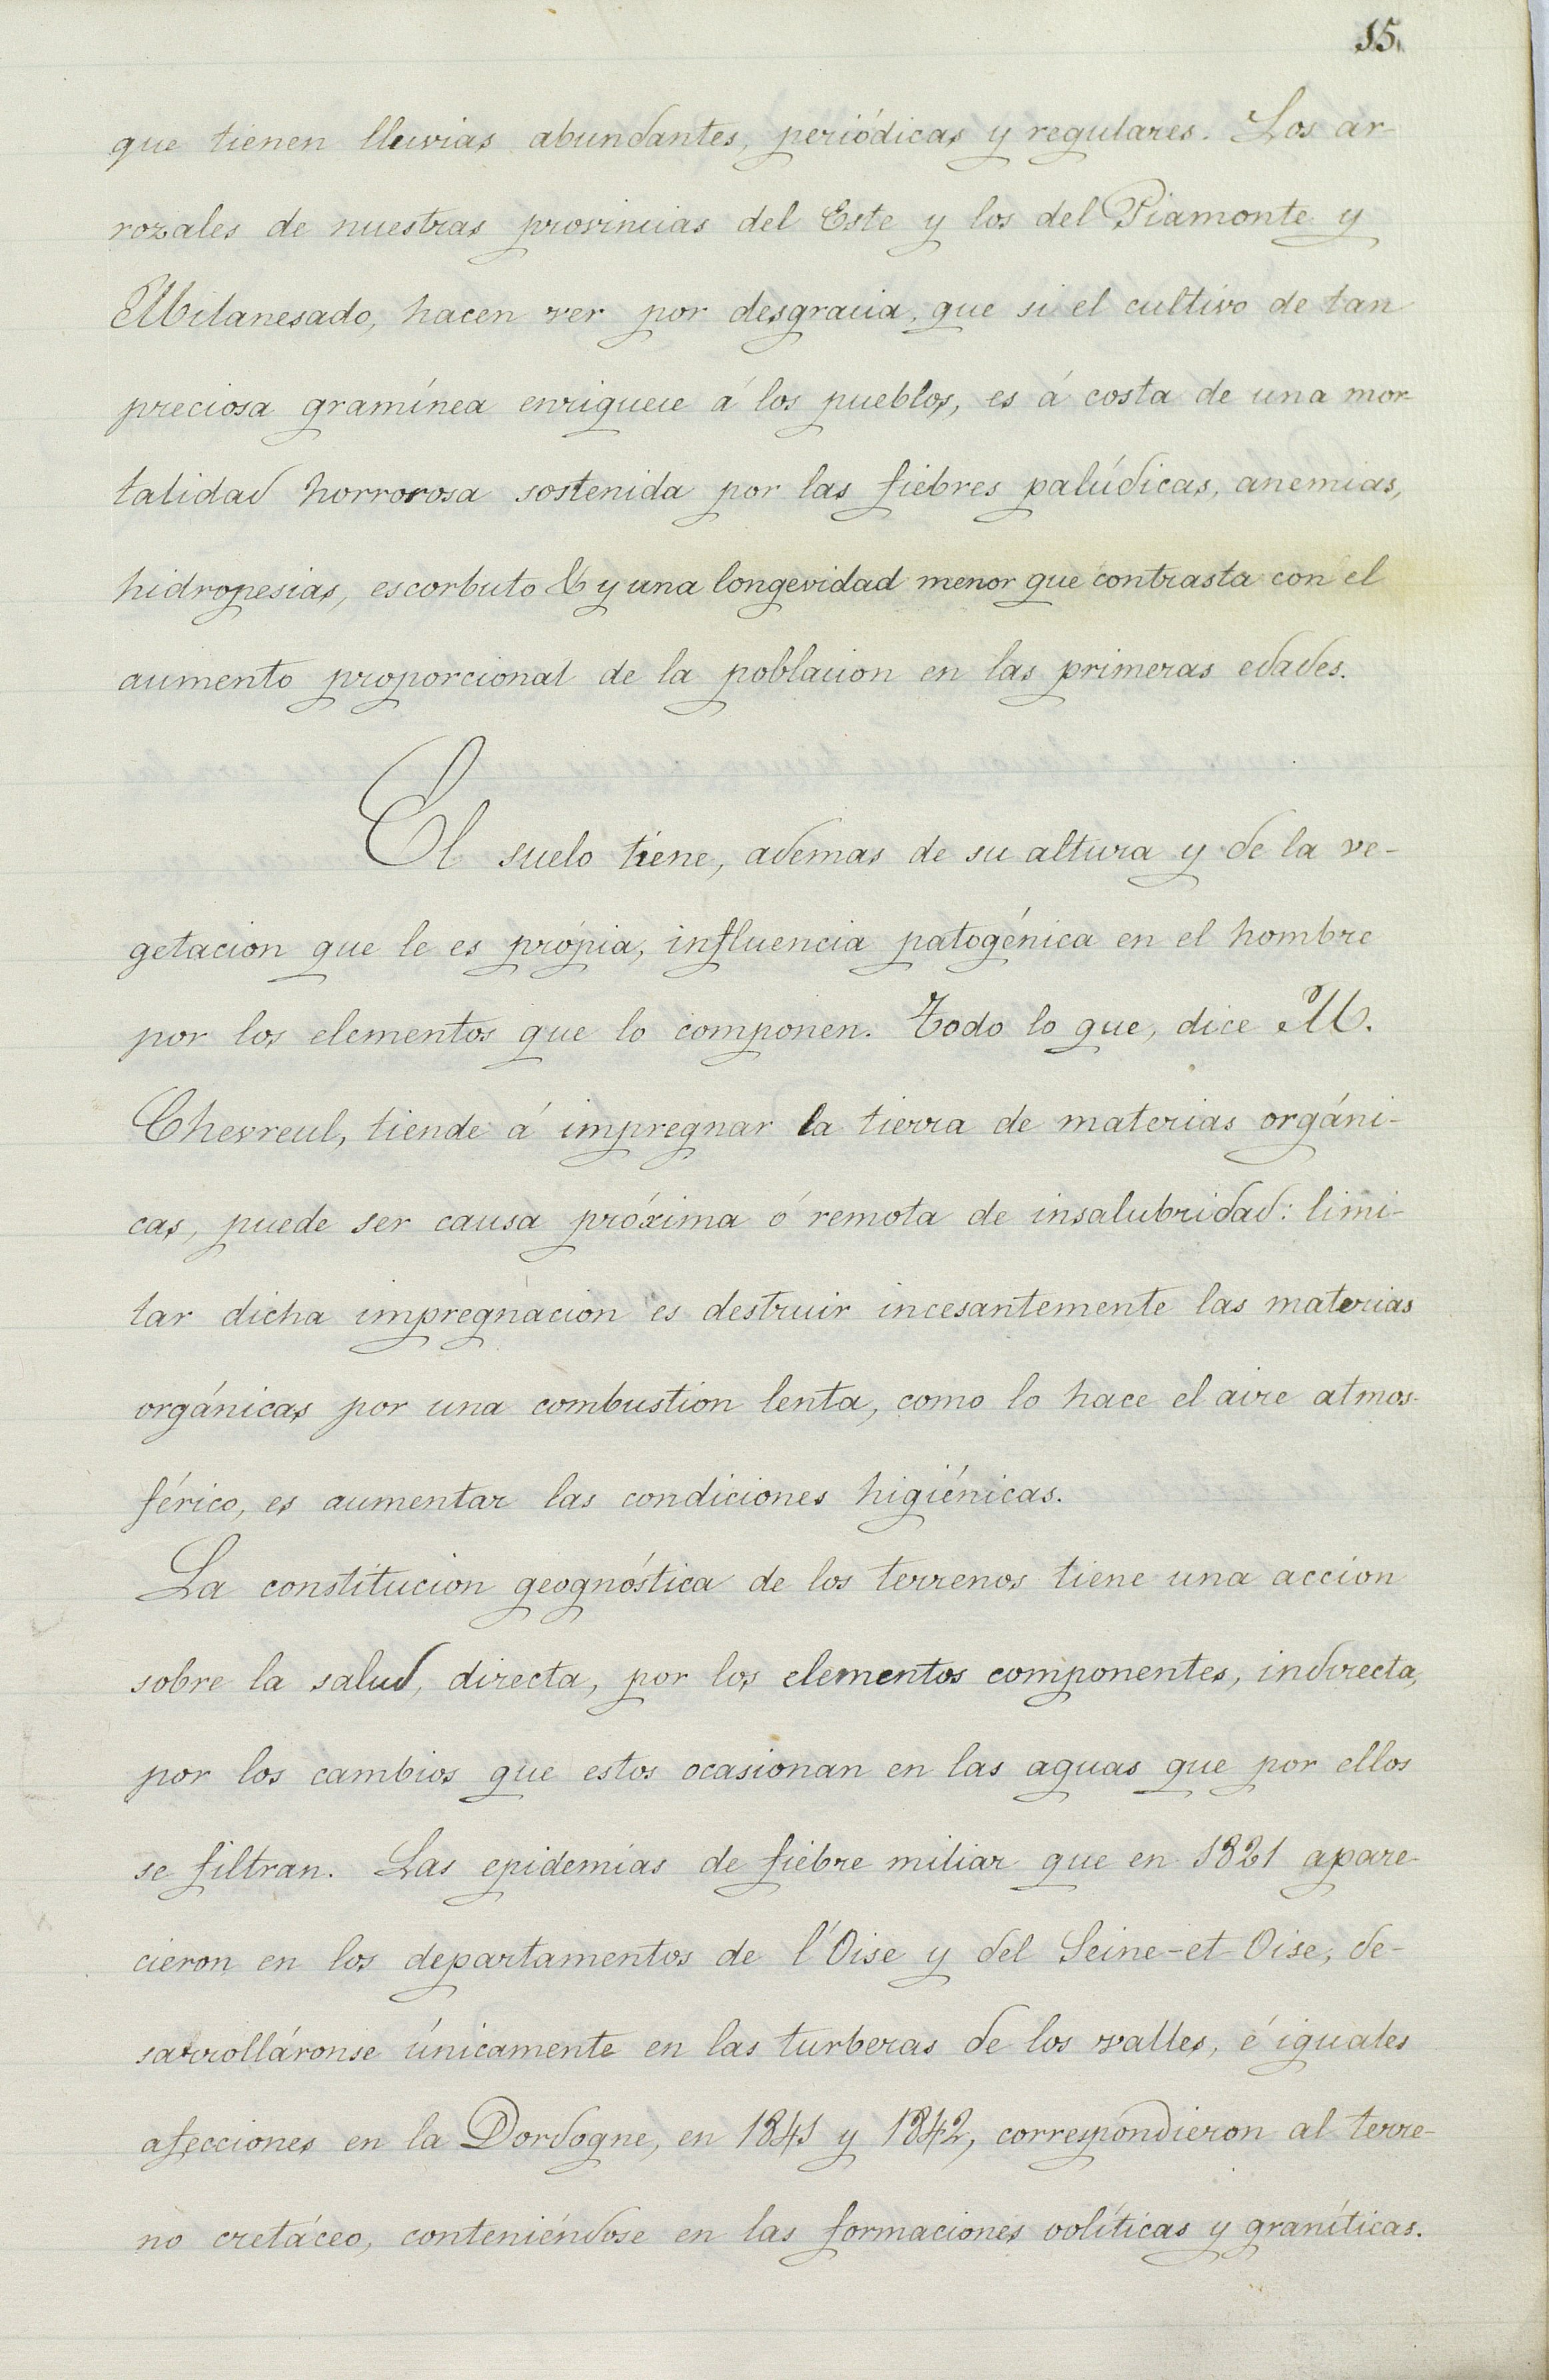 15.
que tienen lluvias abundantes, periódicas y regulares. Los ar-
rozales de nuestras provincias del Este y los del Piamonte y
Milanesado, hacen ver por desgracia, que si el cultivo de tan
preciosa gramínea enriquece á los pueblos, es á costa de una mor-
talidad horrorosa sostenida por las fiebres palúdicas, anemias,
hidropesias, escorbuto & y una longevidad menor que contrasta con el
aumento proporcional de la poblacion en las primeras edades.
El suelo tiene, ademas de su altura y de la ve-
getacion que le es própia, influencia patogénica en el hombre
por los elementos que lo componen. Todo lo que, dice M.
Chevreul, tiende á impregnar la tierra de materias orgáni-
cas, puede ser causa próxima ó remota de insalubridad: limi-
tar dicha impregnacion es destruir incesantemente las materias
orgánicas por una combustion lenta, como lo hace el aire atmos-
férico, es aumentar las condiciones higiénicas.
La constitucion geognóstica de los terrenos tiene una accion
sobre la salud, directa, por los elementos componentes, indirecta,
por los cambios que estos ocasionan en las aguas que por ellos
se filtran. Las epidemias de fiebre miliar que en 1821 apare-
cieron en los departamentos de l'Oise y del Seine-et-Oise, de-
sarrolláronse únicamente en las turberas de los valles, é iguales
afecciones en la Dordogne, en 1841 y 1842, correspondieron al terre-
no cretáceo, conteniéndose en las formaciones oolíticas y graníticas.